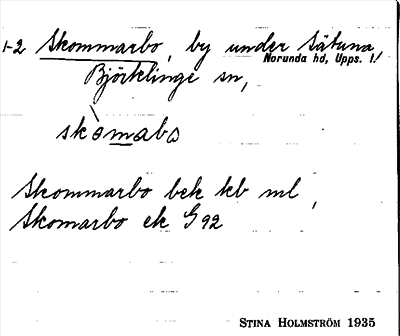 1-2 Skommarbo, by under Sätuna,
Norunda hd, Upps. l.
Björklinge sn,
skòmabo
Skommarbo bek kb ml,
Skomarbo ek G 92
STINA HOLMSTRÖM 1935